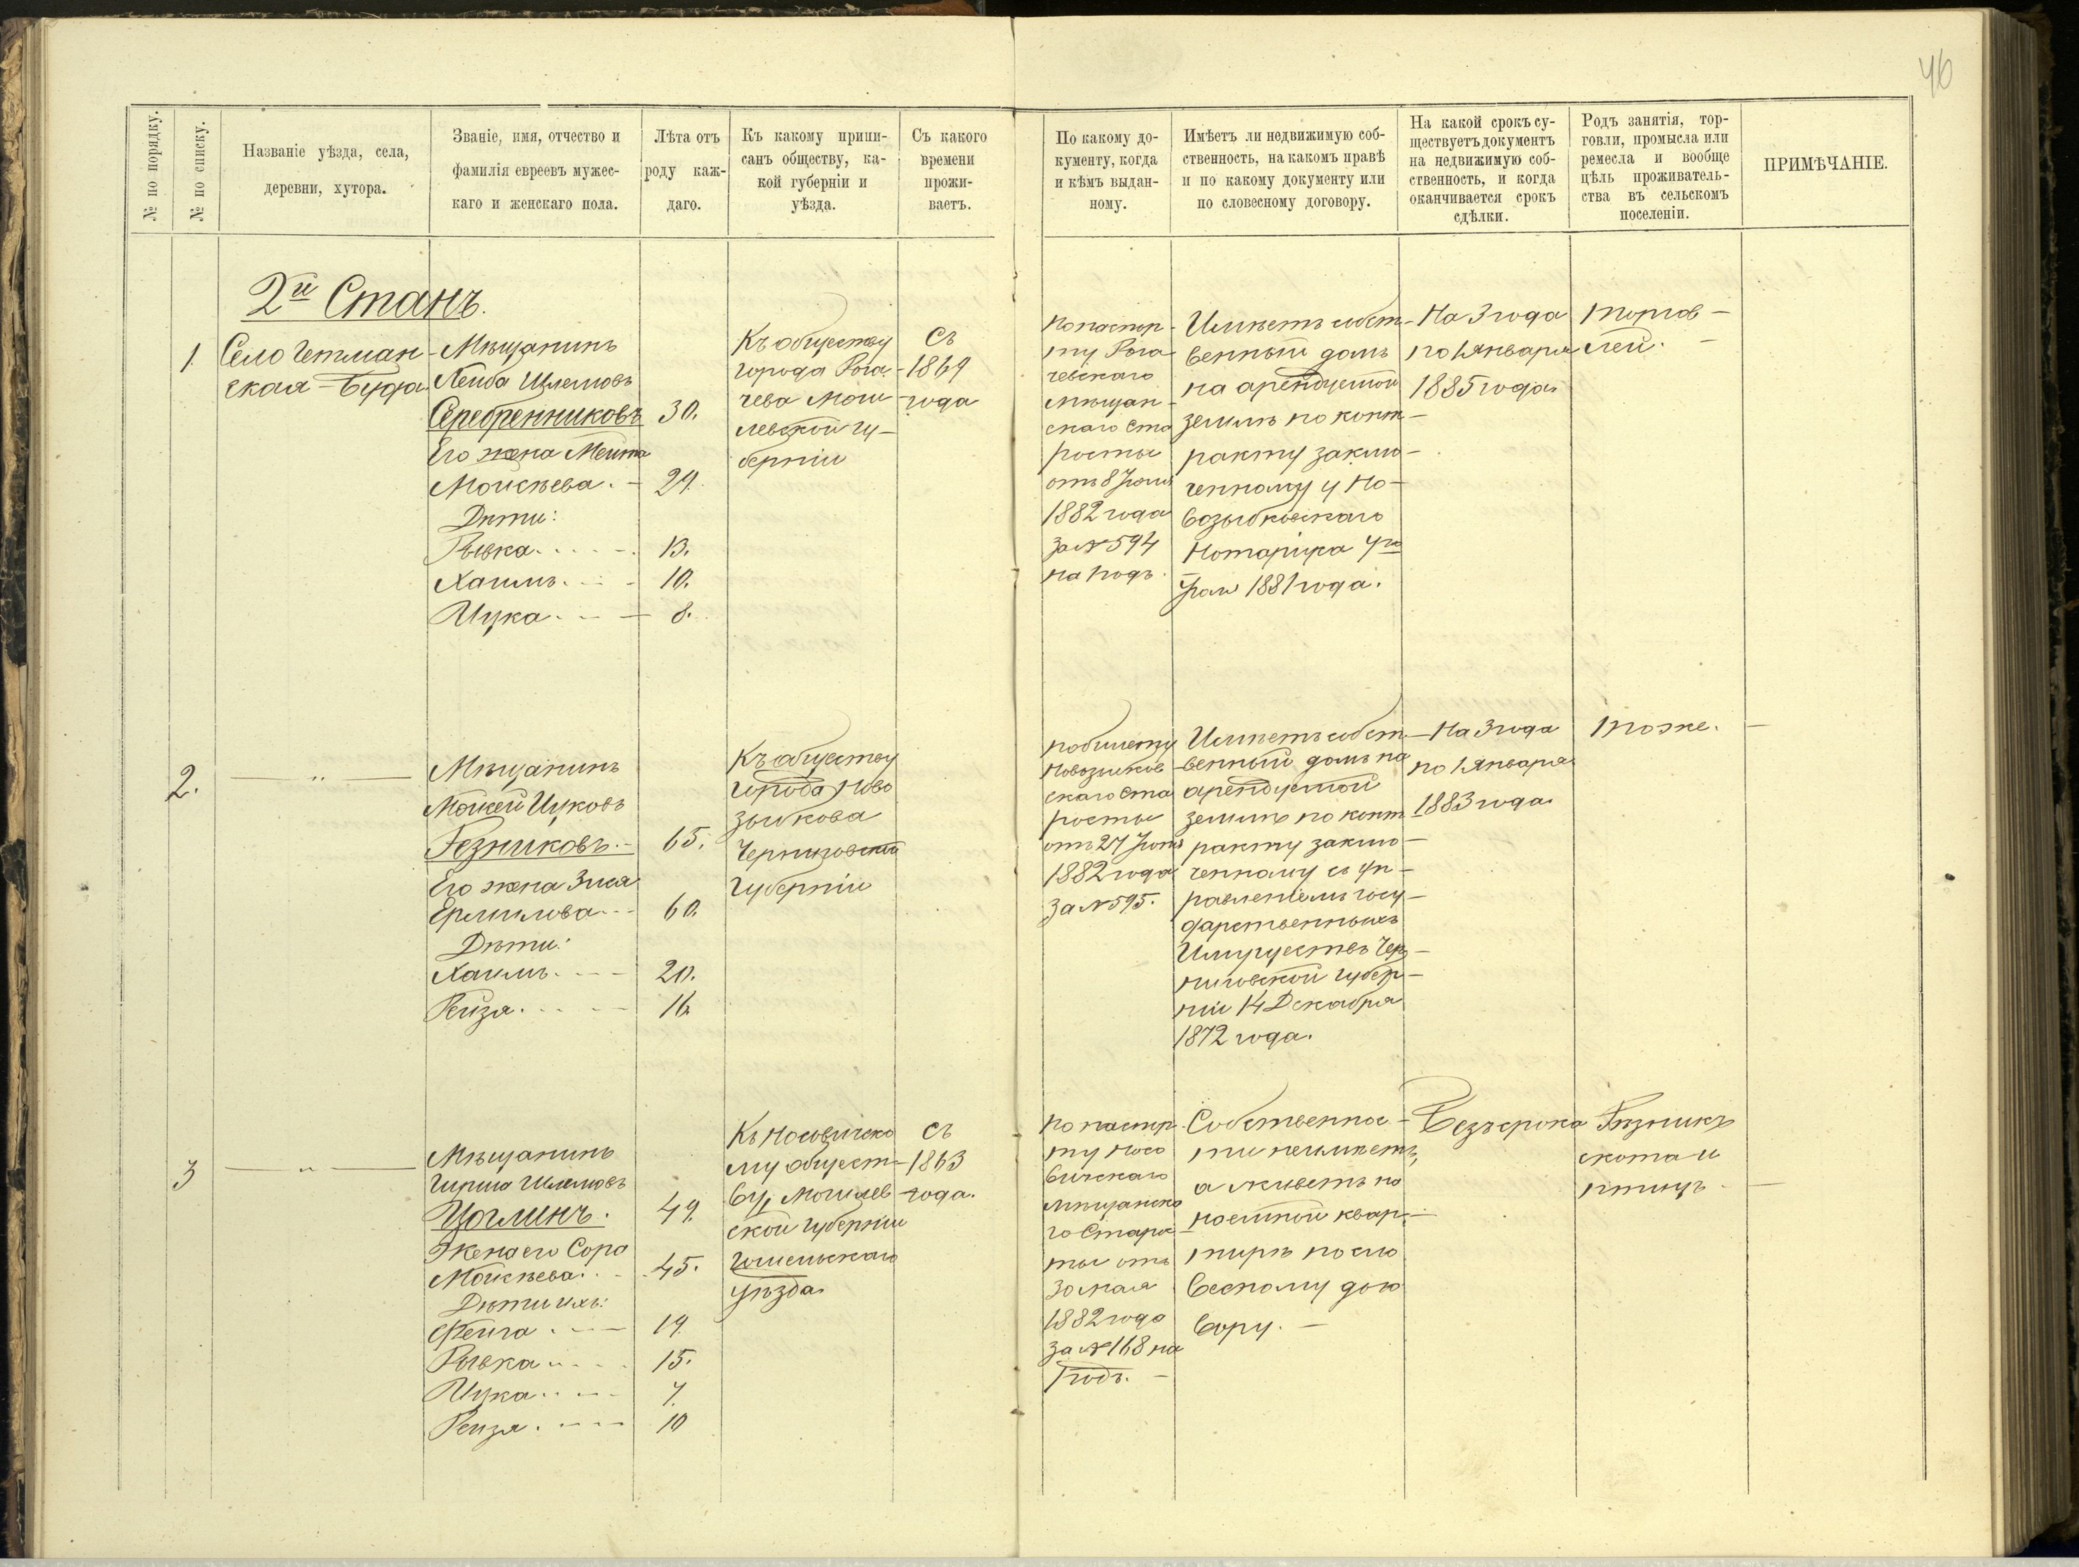 46
№ по порядку.
№ по списку.
Названіе уѣзда, села,
деревни, хутора.
Званіе, имя, отчество и
фамилія евреевъ мужес-
каго и женскаго пола.
Лѣта отъ
роду каж-
даго.
Къ какому припи-
санъ обществу, ка-
кой губерніи и
уѣзда.
Съ какого
времени
прожи-
ваетъ.
По какому до-
кументу, когда
и кѣмъ выдан-
ному.
Имѣетъ ли недвижимую соб-
ственность, на какомъ правѣ
и по какому документу или
по словесному договору.
На какой срокъ су-
ществуетъ документъ
на недвижимую соб-
ственность, и когда
оканчивается срокъ
сдѣлки.
Родъ занятія, тор-
говли, промысла или
ремесла и вообще
цѣль проживатель-
ства въ сельскомъ
поселеніи.
ПРИМѢЧАНІЕ.
2й Станъ.
1.
Село Гетман-
ская-Буда
Мѣщанинъ
Лейба Шлемовъ
Серебренниковъ 30.
Его жена
Моисѣева. - 29.
Дѣти:
Рывка. 13.
Хаимъ. 10.
Ицка. 8.
Къ обществу
города Рога-
чева Моги-
левской гу-
берніи
Съ
1869
года
По паспор-
ту Рога-
чевскаго
мѣщан-
скаго ста
росты
отъ 8 Іюля
1882 года
за № 594
на годъ.
Имѣетъ собст-
венный домъ
на арендуемой
землѣ по конт-
ракту заклю-
ченному у Но-
возыбковскаго
Нотаріуса 4го
1881 года.
На 3 года
по 1 Января
1885 года.
Торгов-
лей.
2.
Мѣщанинъ
Мойсей Ицковъ
Резниковъ. - 65.
Его жена Зися
Ермилова 60.
Дѣти:
Хаимъ. 20.
Рейзя. 16.
Къ обществу
города Ново
зыбкова
Черниговской
Губерніи
По билету
Новозыбков-
скаго ста
росты
отъ 27 Іюля
1882 года
за № 595.
Имѣетъ собст-
венный домъ на
арендуемой
землѣ по конт
ракту заклю-
ченному съ уп-
равленіемъ госу-
дарственныхъ
Имуществъ Чер-
ниговской губер-
ніи 14 Декабря
1872 года.
На 3 года
по 1 Января
1883 года.
Тоже.
3
Мѣщанинъ
Гирша Шлемовъ
Цоглинъ. 49.
Жена его Сора
Моисѣева. 45.
Дѣти ихъ:
Фейга. 19
Рывка 15.
Ицка 7.
Рейзя. 10
Къ Носовичско
му общест-
ву, Могилев
ской губерніи
Гомельскаго
уѣзда.
Съ
1863
года.
По паспор-
ту Носо
вичскаго
мѣщанска
го Старос-
ты отъ
30 мая
1882 года
за № 168 на
годъ. -
Собственнос-
ти не имѣетъ,
а живетъ на
наемной квар-
тирѣ по сло
весному дого
вору. -
Безъ срока
Рѣзникъ
скота и
птицъ.